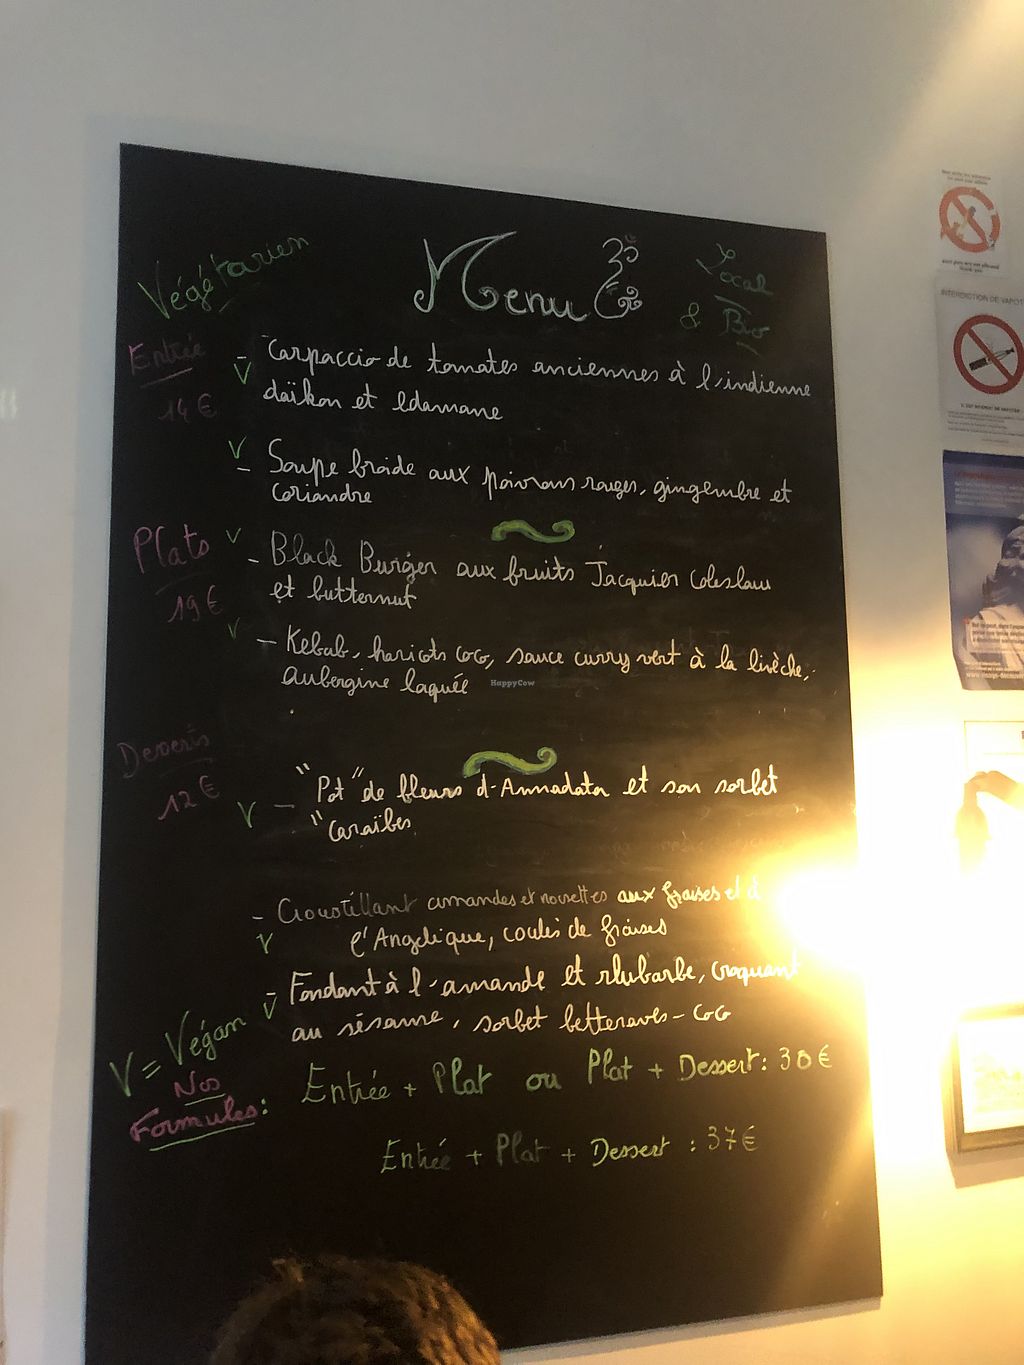 Végétarien
Menu ॐ
Local
& Bio
Entrée
14 €
- Carpaccio de tomates anciennes à l'indienne
V daïkon et Edamame
V - Soupe froide aux poivrons rouges, gingembre et
coriandre
Plats
19 €
V - Black Burger aux fruits Jacquier Coleslaw
et butternut
V - Kebab, haricots coco, sauce curry vert à la livèche,
aubergine laquée
HappyCow
Desserts
12 €
V - "Pot" de fleurs d'Annadata et son sorbet
"Caraïbes
- Croustillant amandes et noisettes aux fraises et à
V l'Angelique, coulis de fraises
- Fondant à l'amande et rhubarbe, croquant
V au sésame, sorbet betteraves - coco
V = Végan
Nos
Formules:
Entrée + Plat ou Plat + Dessert: 30 €
Entrée + Plat + Dessert : 37 €
INTERDICTION DE VAPOT